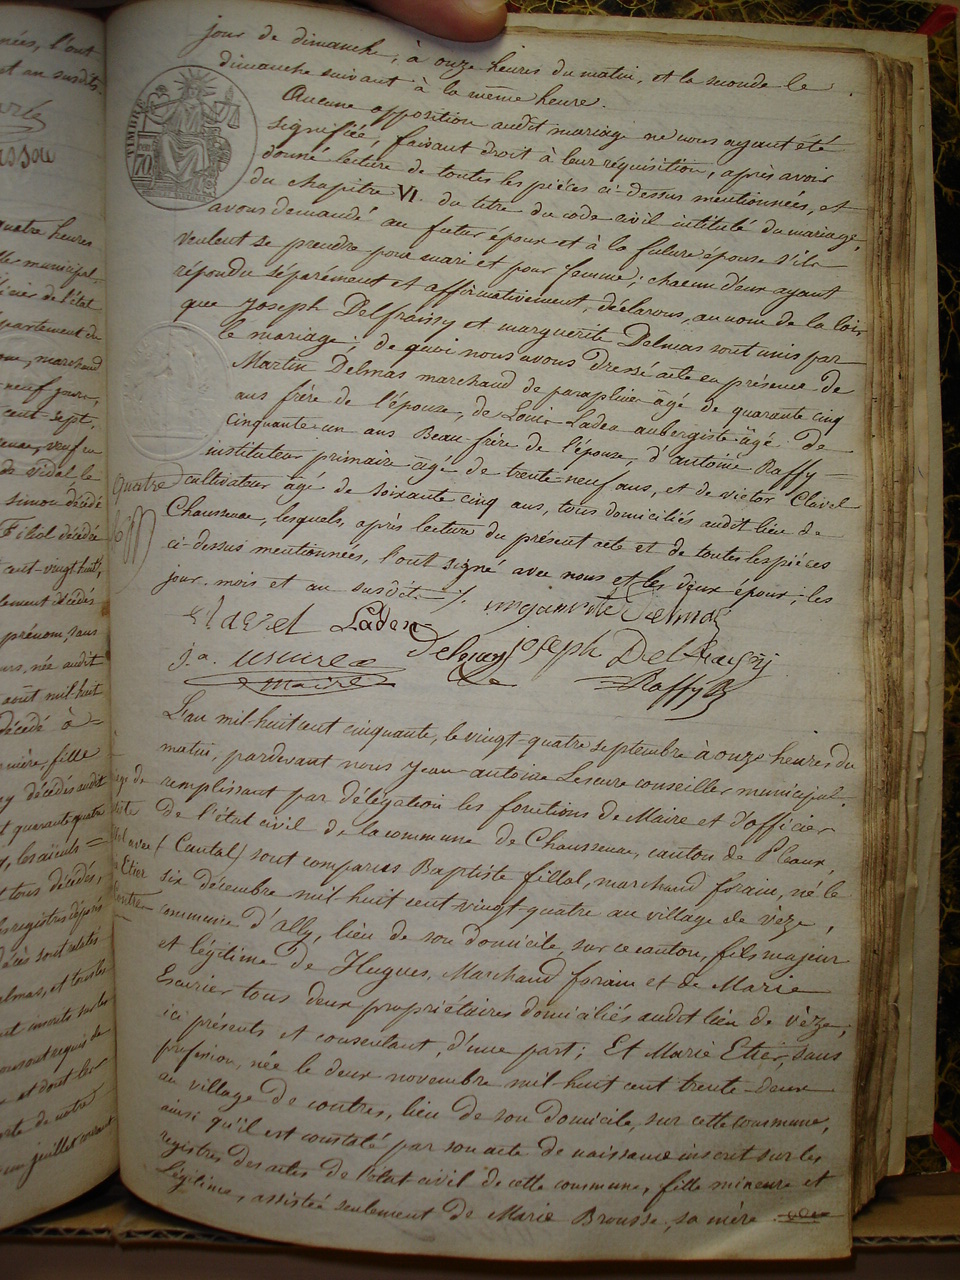 jour de dimanche, à onze heures du matin, et la seconde le
dimanche suivant à la même heure.
Aucune opposition audit mariage ne nous ayant été
signifiée, faisant droit à leur réquisition, après avoir
donné lecture de toutes les pièces ci-dessus mentionnées, et
du chapitre VI. du titre du code civil intitulé du mariage,
avons demandé au futur époux et à la future épouse s'ils
veulent se prendre pour mari et pour femme; chacun d'eux ayant
répondu séparément et affirmativement, déclarons, au nom de la loi,
que Joseph Delfraissy et marguerite Delmas sont unis par
le mariage; de quoi nous avons dressé acte en présence de
Martin Delmas marchand de parapluies âgé de quarante cinq
ans frère de l'épouse, de Louis Laden aubergiste âgé de
Cinquante-un ans Beau-frère de l'épouse, d'antoine Raffy
instituteur primaire âgé de trente-neuf ans, et de victor Clavel
Cultivateur âgé de soixante cinq ans, tous domiciliés audit lieu de
Chaussenac, lesquels, après lecture du présent acte et de toutes les pièces
ci-dessus mentionnées, l'ont signé avec nous et les deux époux, les
jour, mois et an susdits.
marguerite Delmas
Clavel Laden Delmas joseph Delfraissy
j. a. Lescure Raffy
maire
L'an mil-huit cent cinquante, le vingt-quatre septembre à onze heures du
matin, pardevant nous Jean-antoine Lescure conseiller municipal
remplissant par délégation les fonctions de Maire et d'officier
de l'état civil de la commune de Chaussenac, canton de Pleaux,
(Cantal) sont comparus Baptiste fillol, marchand forain, né le
six décembre mil huit cent vingt-quatre au village de vèze,
commune d'Ally, lieu de son domicile, sur ce canton, fils majeur
et légitime de Hugues, Marchand forain et de Marie
Escurier tous deux propriétaires domiciliés audit lieu de vèze,
ici présents et consentant, d'une part; Et Marie Etier, sans
profession, née le deux novembre mil-huit cent trente-deux
au village de contres, lieu de son domicile, sur cette commune,
ainsi qu'il est constaté par son acte de naissance inscrit sur les
registres des actes de l'état civil de cette commune, fille mineure et
Légitime, assistée seulement de Marie Brousse, sa mère